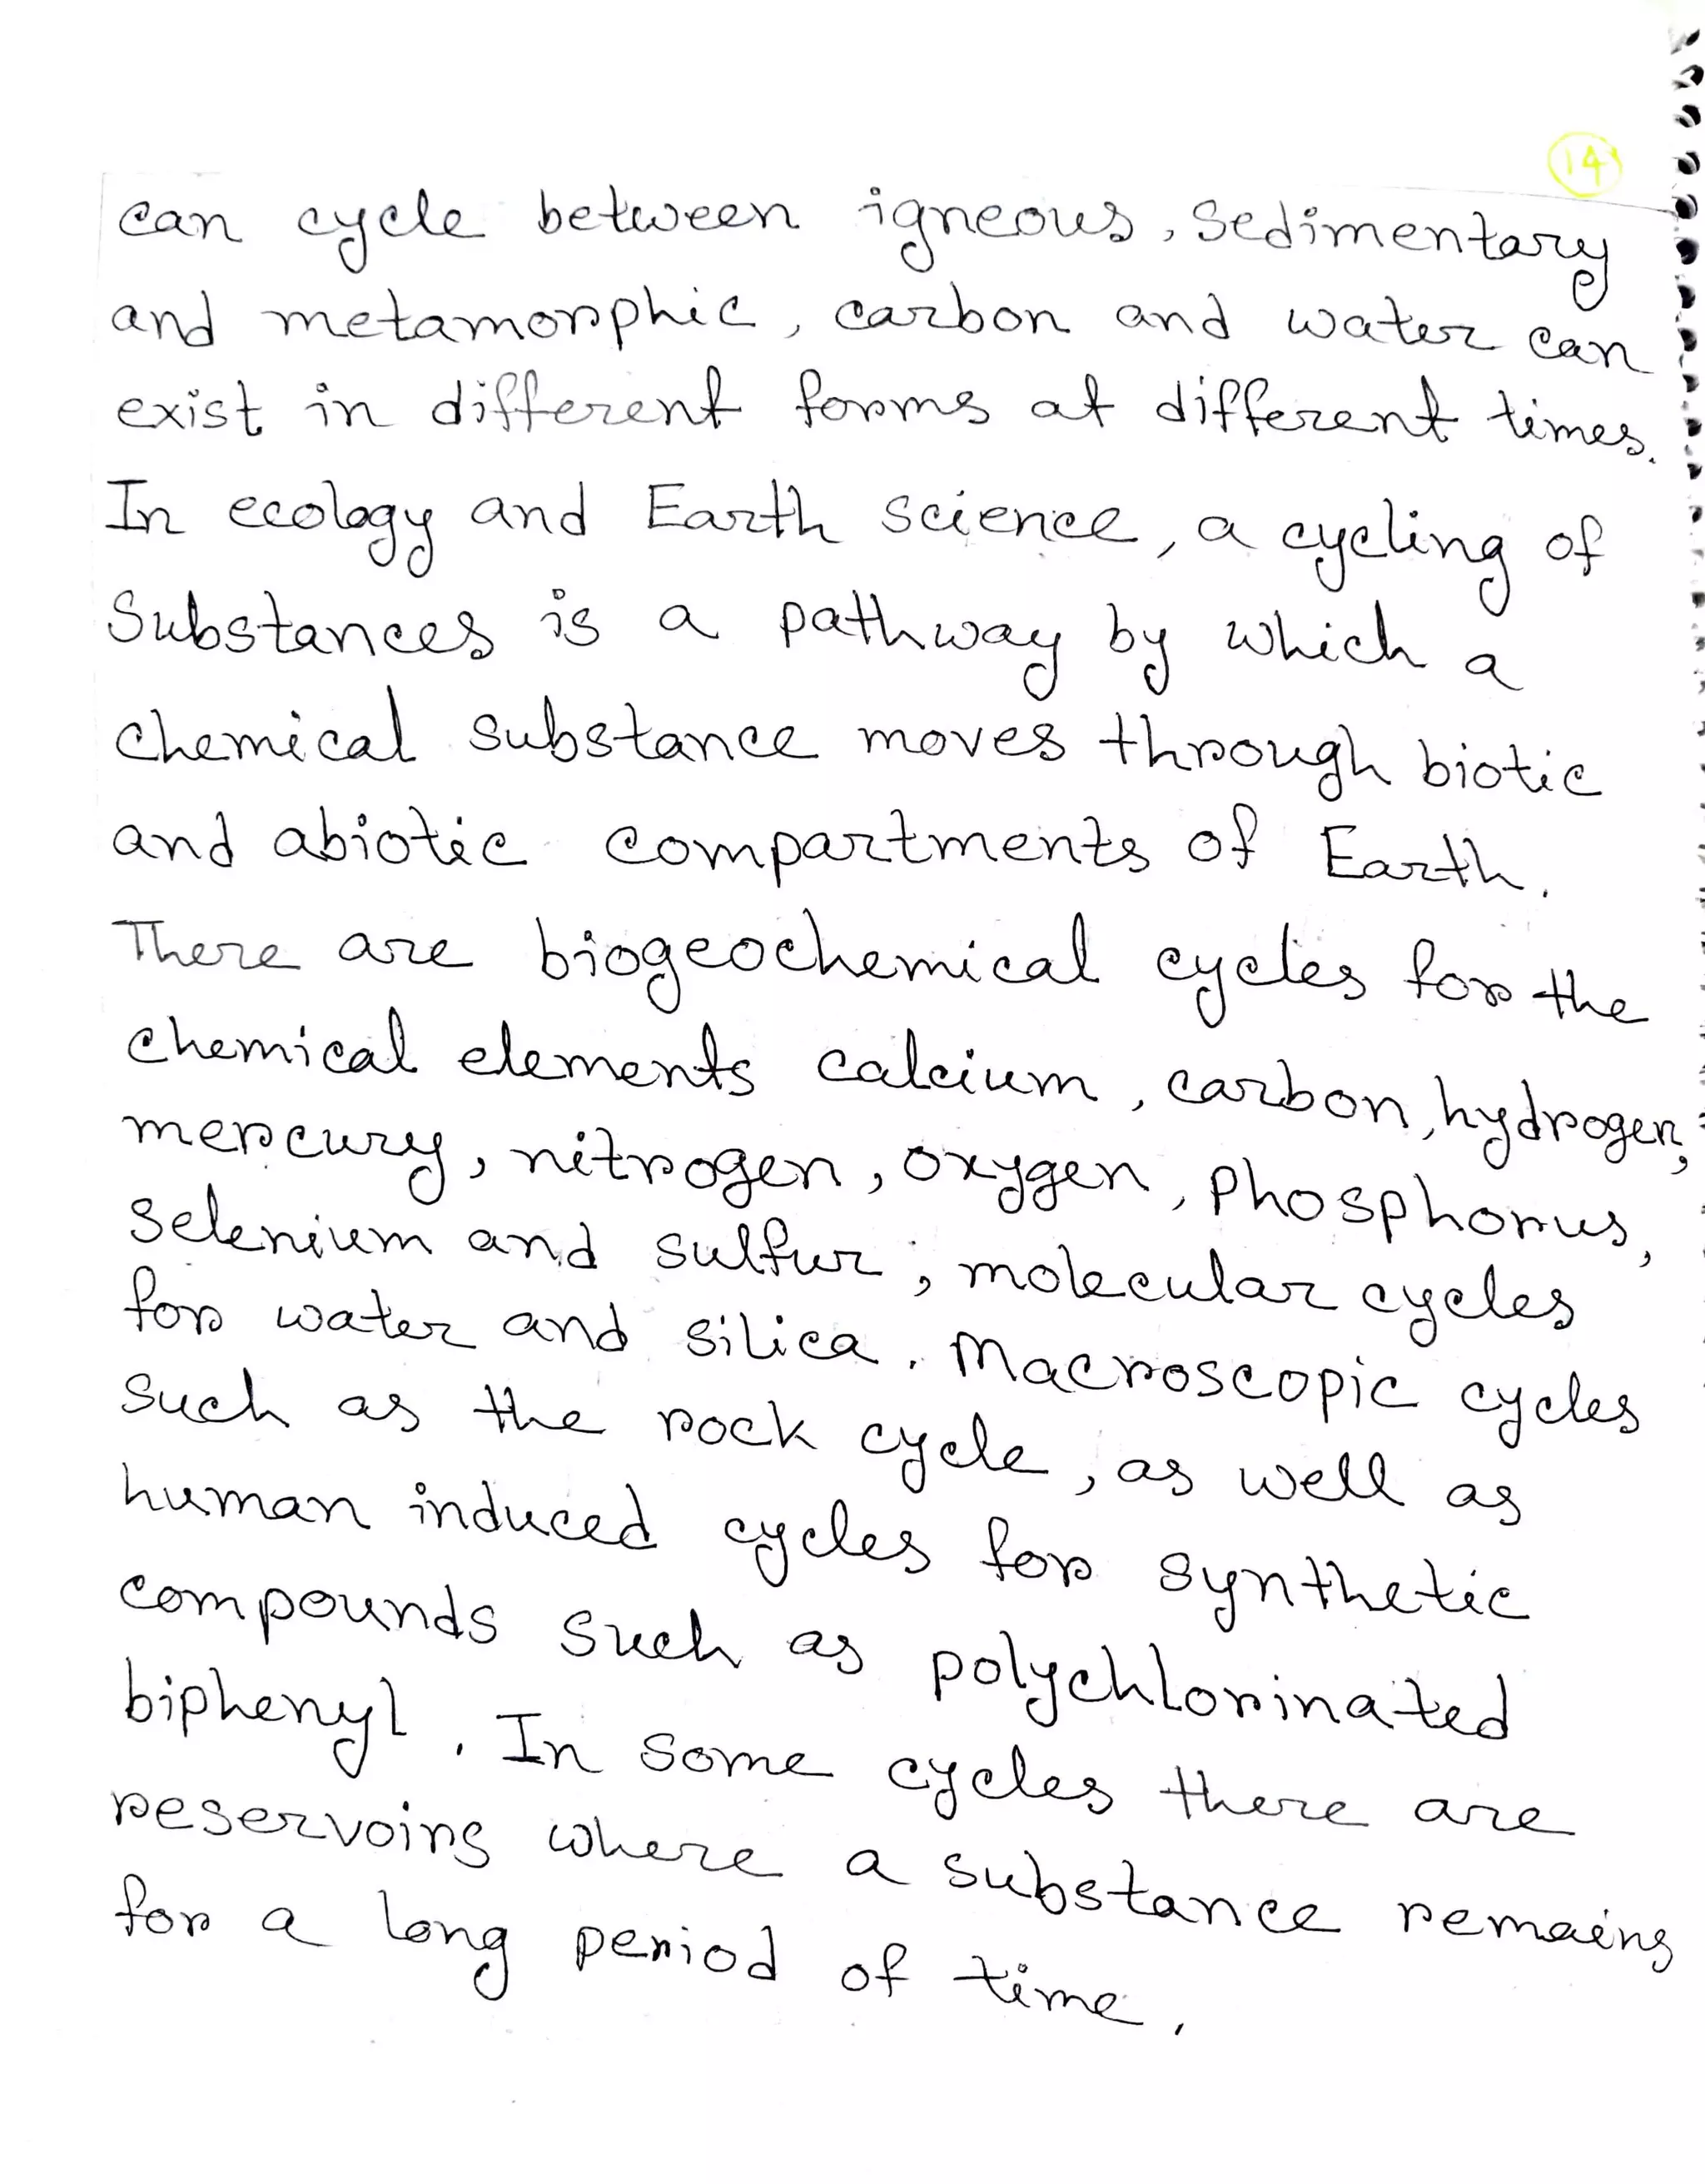 14
can cycle between igneous, Sedimentary
and metamorphic, carbon and water can
exist in different forms at different times.
In ecology and Earth science, a cycling of
Substances is a pathway by which a
chemical substance moves through biotic
and abiotic compartments of Earth.
There are biogeochemical cycles for the
chemical elements calcium, carbon, hydrogen,
mercury, nitrogen, oxygen, phosphorus,
selenium and sulfur; molecular cycles
for water and silica. Macroscopic cycles
such as the rock cycle, as well as
human induced cycles for synthetic
compounds such as polychlorinated
biphenyl. In some cycles there are
reservoirs where a substance remains
for a long period of time.